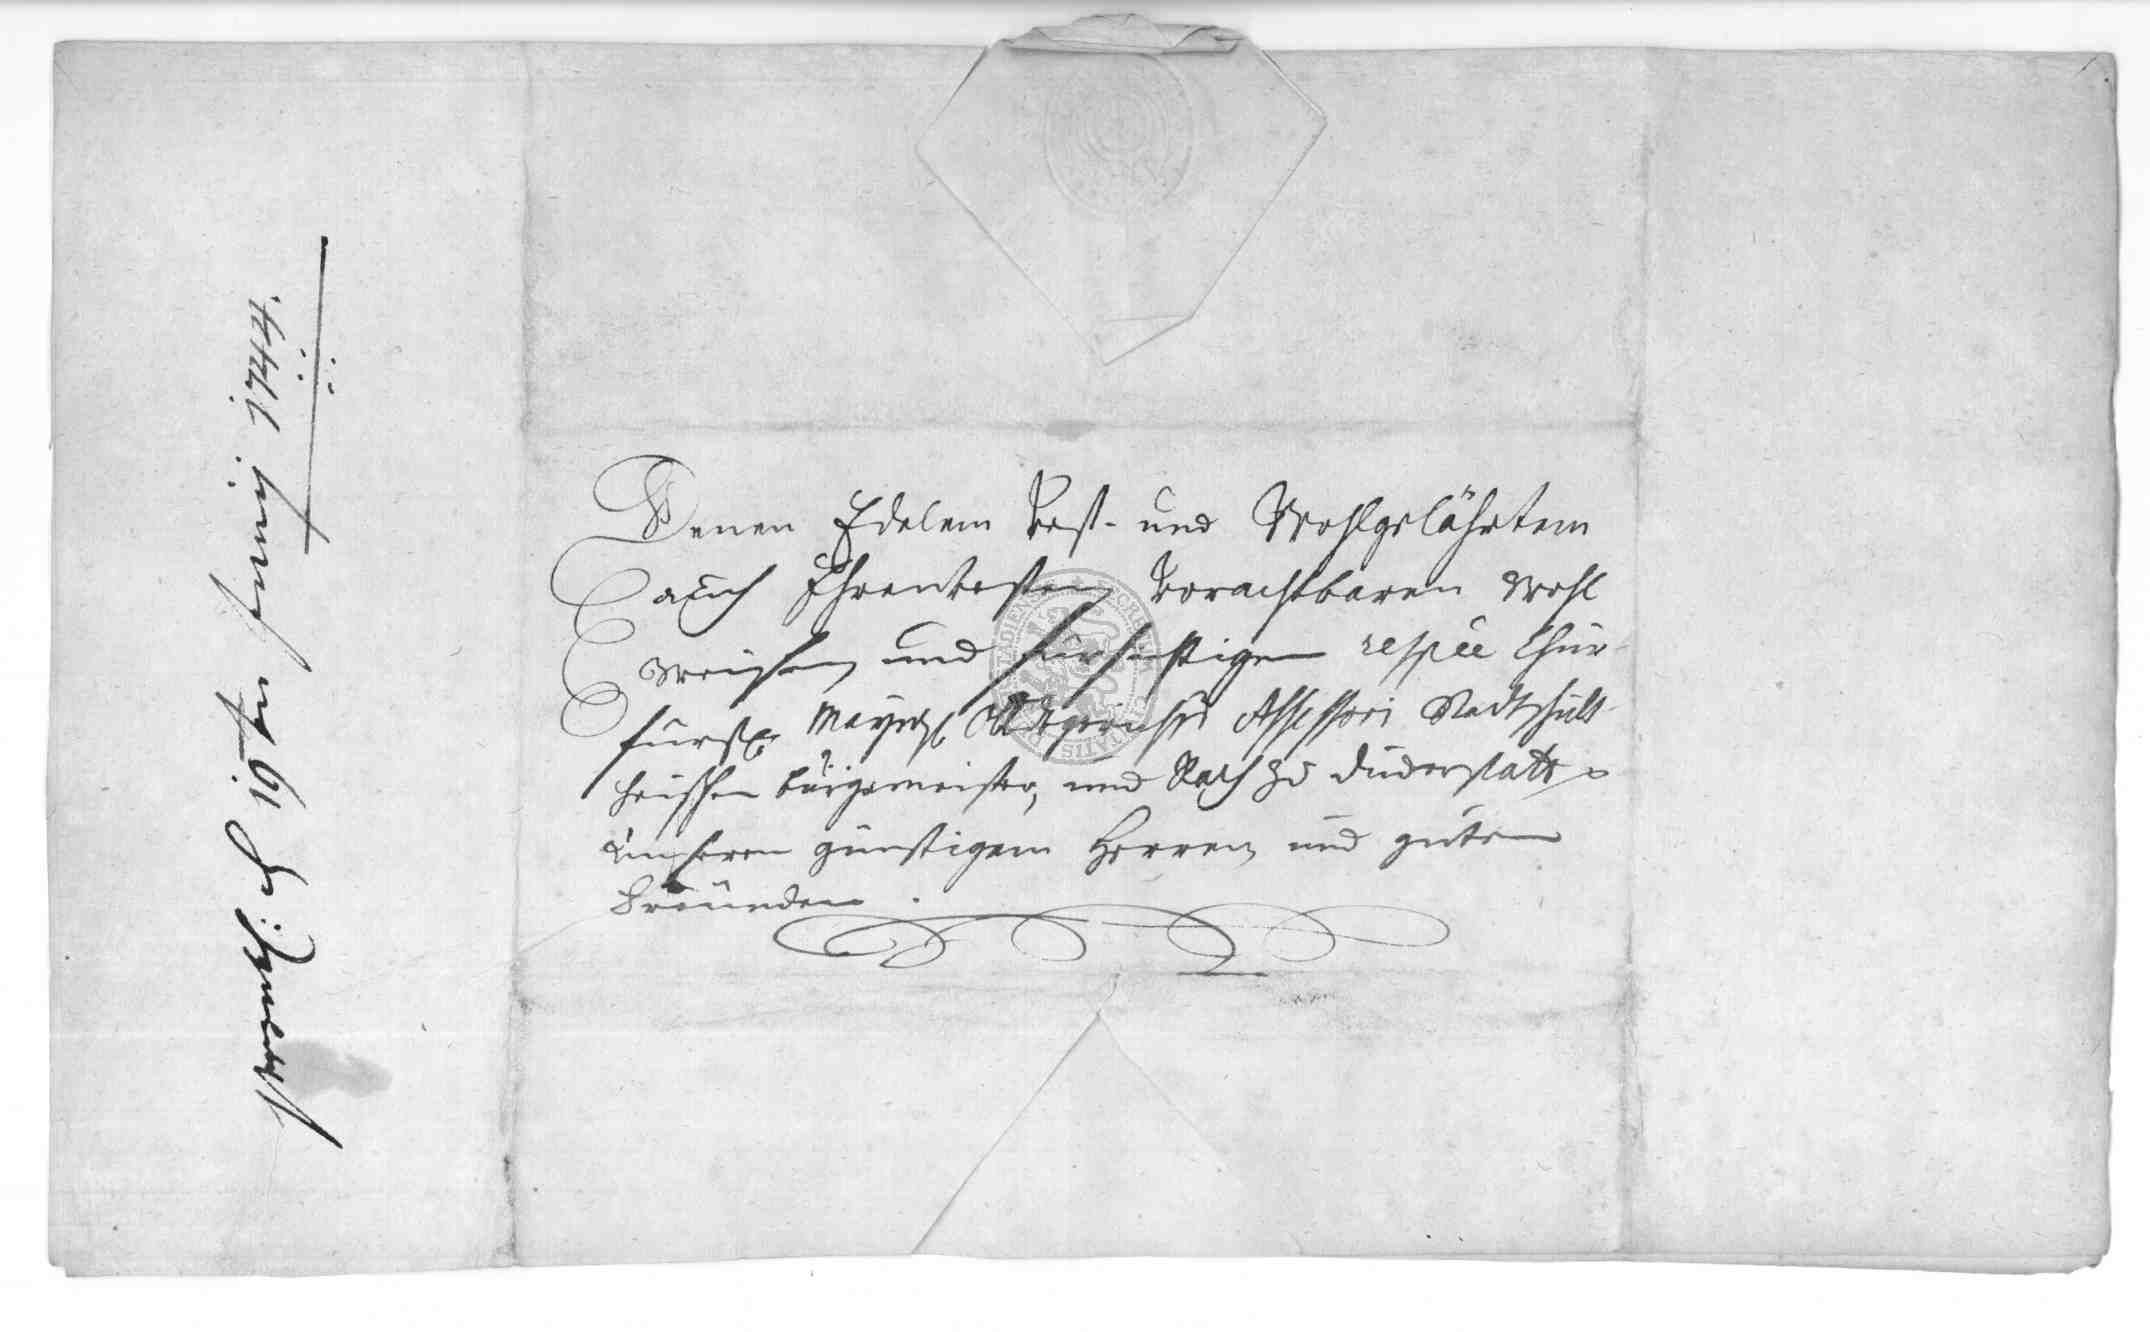 Denen Edelen Vest- und Wohlgelährten
auch Ehrenvesten, Vorachtbaren Wohl
Weisen, und fürsichtigen respée Chur-
fürstl. Mayntz. Assessori Stadtschult-
heissen bürgermeister, und Rath zu Duderstatt
unseren günstigen Herren, und guten
Freünden.
d. 19ten Junij 1744.